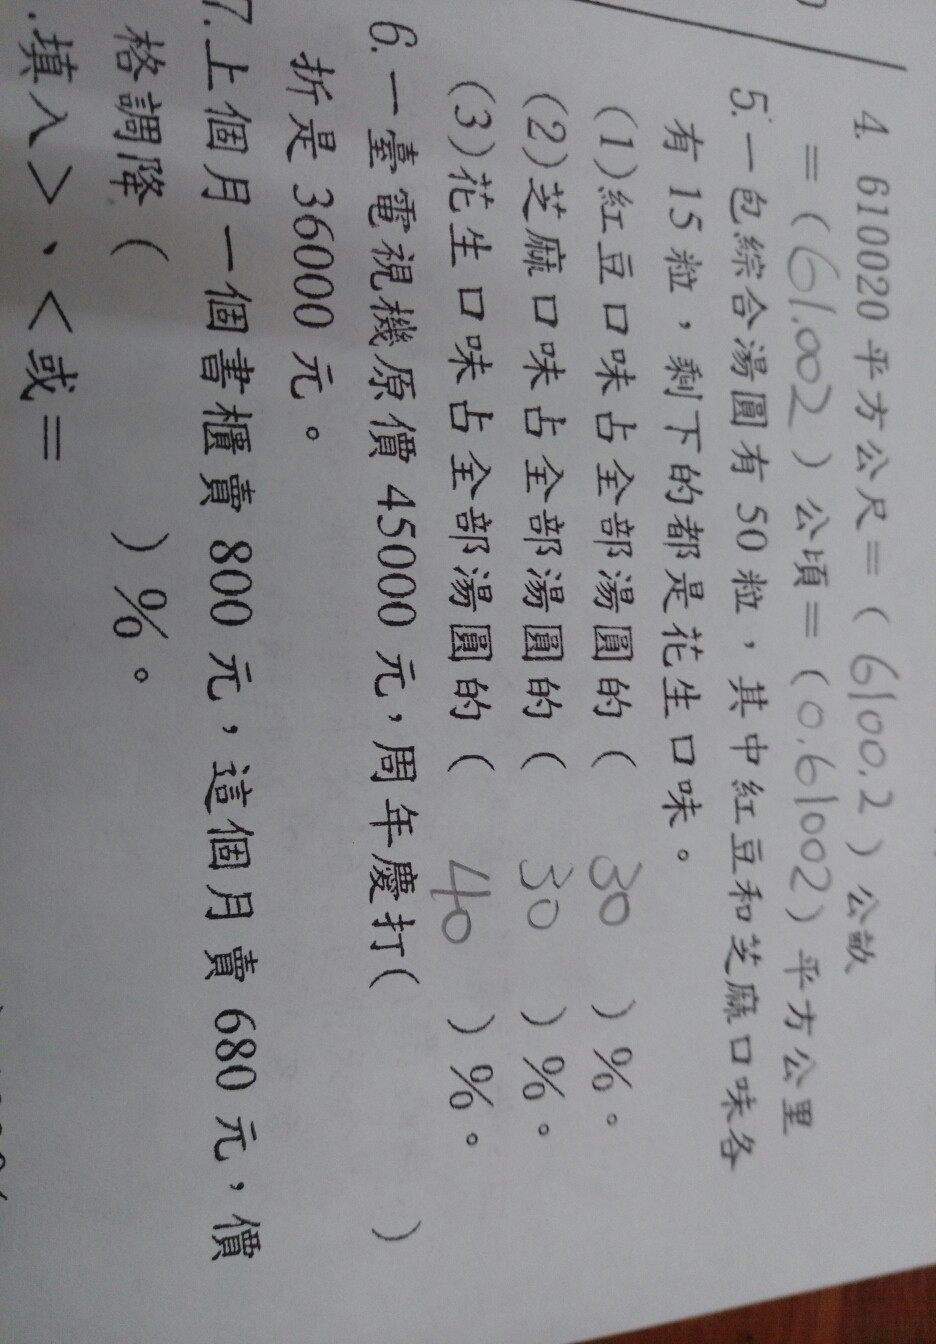 4. 610020平方公尺=(6100.2)公畝
=(61.002)公頃=(0.61002)平方公里
5.一包綜合湯圓有50粒，其中紅豆和芝麻口味各
有15粒，剩下的都是花生口味。
(1)紅豆口味占全部湯圓的(30)%。
(2)芝麻口味占全部湯圓的(30)%。
(3)花生口味占全部湯圓的(40)%。
6.一臺電視機原價45000元，周年慶打( )
折是36000元。
7.上個月一個書櫃賣800元，這個月賣680元，價
格調降( )%。
.填入>、<或=